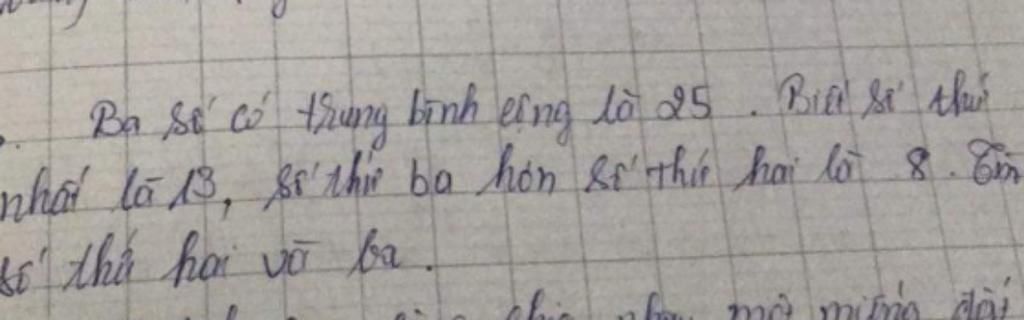 Ba số có trung bình cộng là 25. Biết số thứ
nhất là 13, số thứ ba hơn số thứ hai là 8. Tìm
số thứ hai và ba.